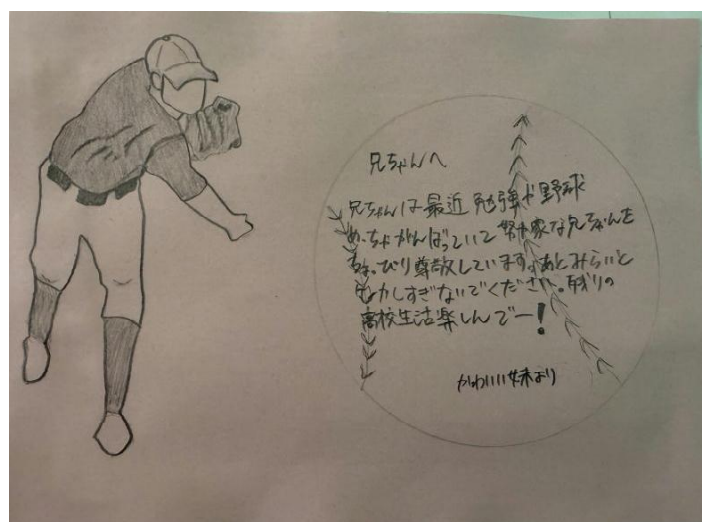 兄ちゃんへ
兄ちゃんは最近勉強や野球
めっちゃがんばっていて努力家な兄ちゃんを
ちょっぴり尊敬しています。あとみらいと
むかしすぎないでください。残りの
高校生活楽しんでー!
かわいい妹より